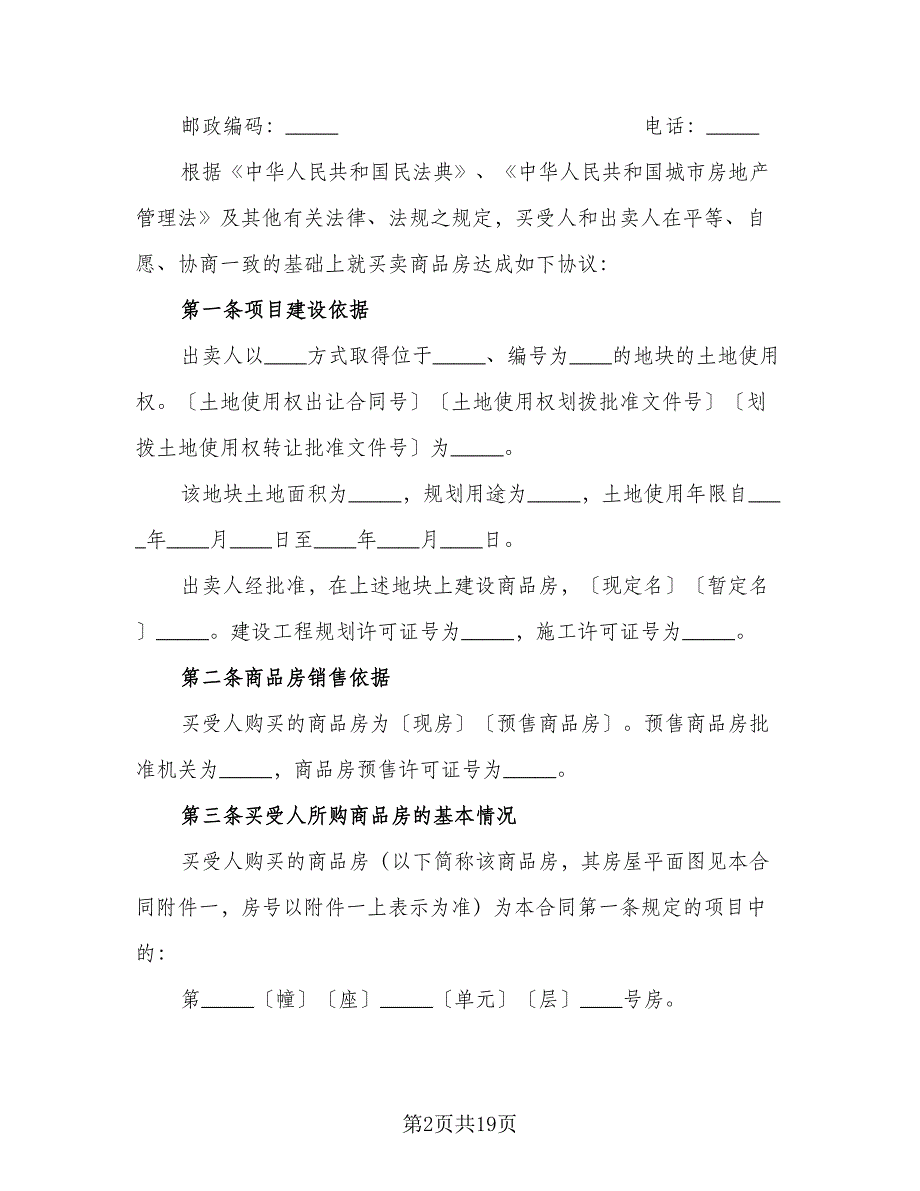 邮政编码：_____ 电话：_____
根据《中华人民共和国民法典》、《中华人民共和国城市房地产
管理法》及其他有关法律、法规之规定，买受人和出卖人在平等、自
愿、协商一致的基础上就买卖商品房达成如下协议：
第一条项目建设依据
出卖人以____方式取得位于_____、编号为____的地块的土地使用
权。〔土地使用权出让合同号〕〔土地使用权划拨批准文件号〕〔划
拨土地使用权转让批准文件号〕为_____。
该地块土地面积为_____，规划用途为_____，土地使用年限自___
_年____月____日至____年____月____日。
出卖人经批准，在上述地块上建设商品房，〔现定名〕〔暂定名
〕_____。建设工程规划许可证号为_____，施工许可证号为_____。
第二条商品房销售依据
买受人购买的商品房为〔现房〕〔预售商品房〕。预售商品房批
准机关为_____，商品房预售许可证号为_____。
第三条买受人所购商品房的基本情况
买受人购买的商品房（以下简称该商品房，其房屋平面图见本合
同附件一，房号以附件一上表示为准）为本合同第一条规定的项目中
的：
第_____〔幢〕〔座〕_____〔单元〕〔层〕____号房。
第2页共19页